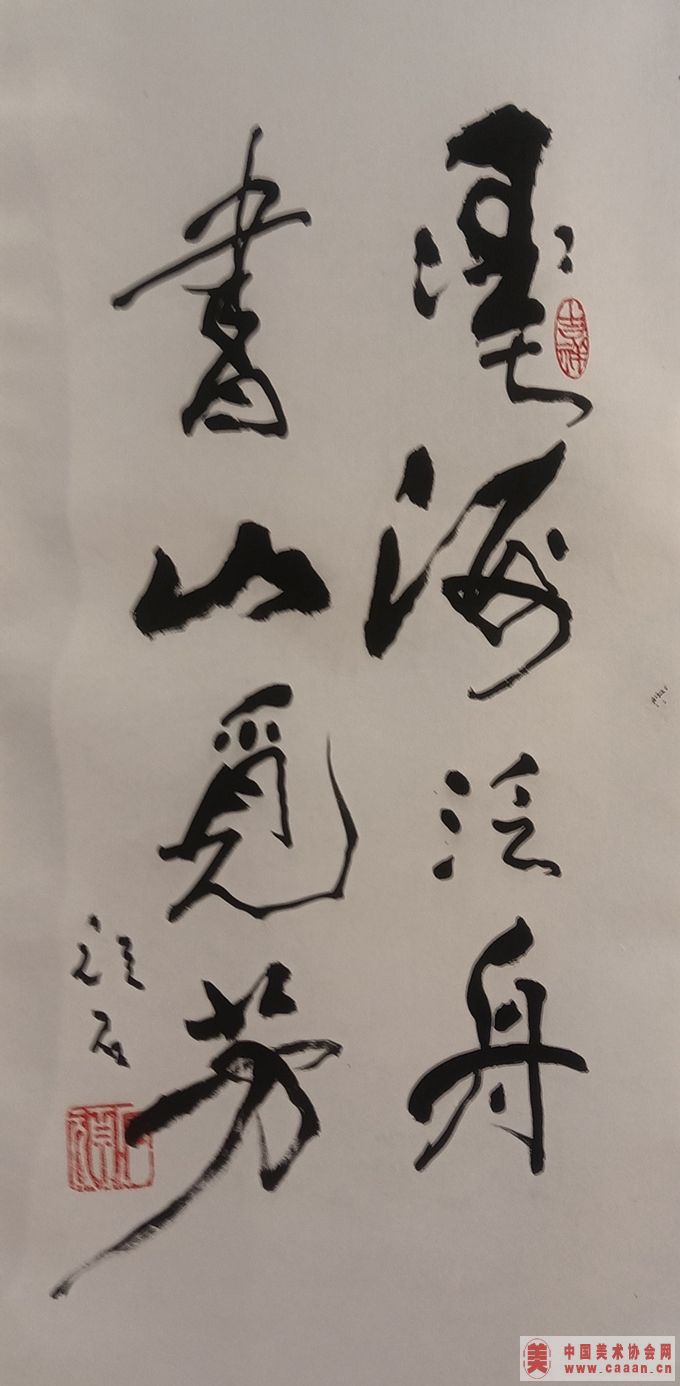 墨海泛舟
書山覓芳
石
吉祥
中国美术协会网
www.caaan.cn